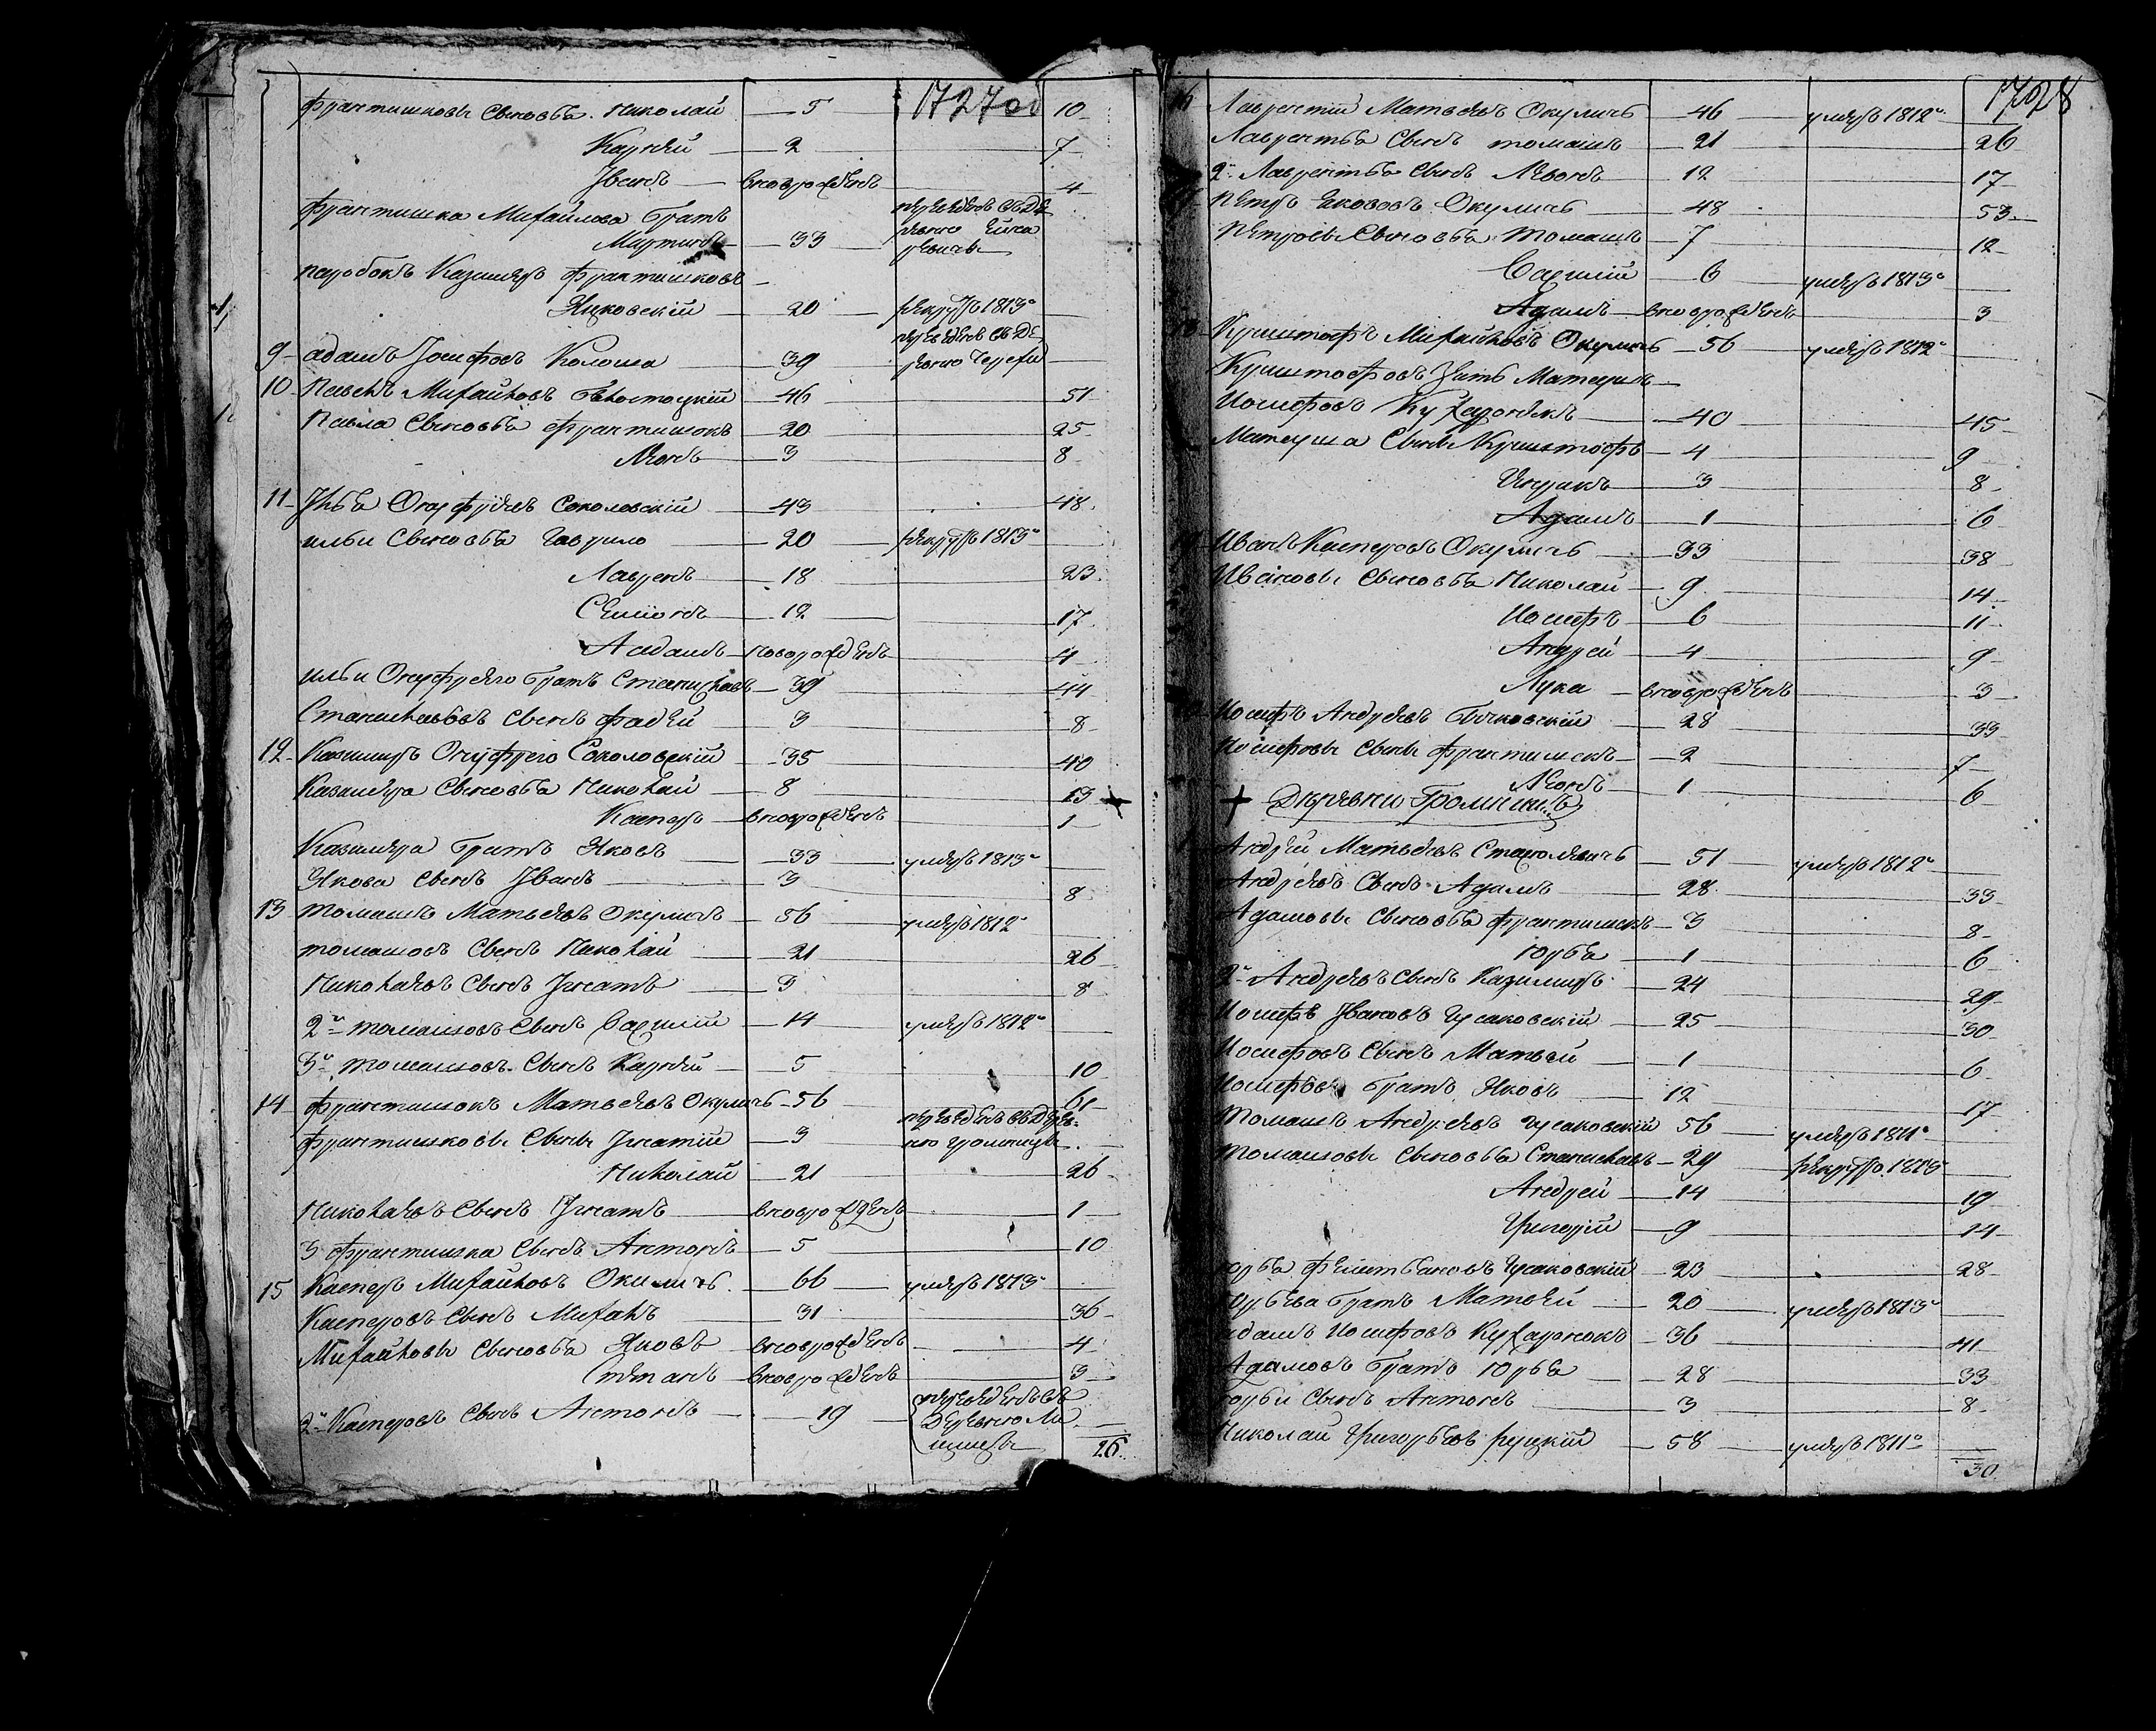 1727 об
Франтишковы Сыновья Николай — 5 — 10
Карней — 2 — 7
Иванъ — вноврожденъ — 4
Франтишка Михайлова братъ переведенъ въ де
Мартинъ — 33 ревню
паробокъ Казимеръ Франтишковъ
Яцковскій — 20 — рекрутъ 1813
9 адамъ Іосифовъ Колоша — 39 переведенъ въ деревню
10 Павелъ Михайловъ — 46 — 51
Павла Сыновья Франтишокъ — 20 — 25
Леонъ — 3 — 8
11 Илья Онуфріевъ Соколовскій — 43 — 48
ильи Сыновья Гаврило — 20 — рекрутъ 1813
Лавренъ — 18 — 23
Семіонъ — 12 — 17
Аадамъ — новорожденъ — 4
ильи Онуфріего братъ Станиславъ — 39 — 44
Станиславовъ Сынъ Фадей — 3 — 8
12 Казимиръ Онуфрего Соколовскій — 35 — 40
Казимера Сыновья Николай — 8 — 13
Касперъ — вноворожденъ — 1
Казимера братъ Яковъ — 33 — умеръ 1813
Якова Сынъ Иванъ — 3 — 8
13 Томашъ Матвеевъ Окуличъ — 56 — умеръ 1812
томашовъ Сынъ Николай — 21 — 26
Николаевъ Сынъ Игнатъ — 3 — 8
2й томашовъ Сынъ Василій — 14 — умеръ 1812
3й томашовъ Сынъ Карней — 5 — 10
14 Франтишокъ Матвеевъ Окуличъ — 56 — 61
Франтишковы Сыны Игнатій — 3 переведенъ въ дерев
ню громницы
Николай — 21 — 26
Николаевъ Сынъ Игнатъ — вноврожденъ — 1
3 Франтишка Сынъ Антонъ — 5 — 10
15 Касперъ Михайловъ Окуличъ — 66 — умеръ 1813
Касперовъ Сынъ Михалъ — 31 — 36
Михайловы Сыновья Яковъ — вноворожденъ — 4
Степанъ — вноврожденъ — 3
2й Касперовъ Сынъ Антонъ — 19 переведенъ въ
деревню
26
1728
16 Лаврентій Матвеевъ Окуличъ — 46 — умеръ 1812
Лаврентья Сынъ томашъ — 21 — 26
2й Лаврентья Сынъ Леонъ — 12 — 17
Петръ Яковъ Окуличъ — 48 — 53
Петровы Сыновья Томашъ — 7 — 12
Василій — 6 — умеръ 1813
Адамъ — вноврожденъ — 3
Криштофъ Михайловъ Окуличъ — 56 — умеръ 1812
Криштофовъ Зять Матеушъ
Іосифовъ Кухаронекъ — 40 — 45
Матеуша Сыны Криштофъ — 4 — 9
3 — 8
Адамъ — 1 — 6
Иванъ Касперовъ Окуличъ — 33 — 38
Ивановы Сыновья Николай — 9 — 14
Иосифъ — 6 — 11
Андрей — 4 — 9
Лука — вноврожденъ — 3
Иосифъ Андреевъ Бычковскій — 28 — 33
Иосифовы Сыны Франтишекъ — 2 — 7
Леонъ — 1 — 6
Деревни Громницы
Андрей Матвеевъ — 51 — умеръ 1812
Андреевъ Сынъ Адамъ — 28 — 33
Адамовы Сыновья Франтишекъ — 3 — 8
Юрья — 1 — 6
2й Андреевъ Сынъ Казимиръ — 24 — 29
Иосифъ Ивановъ Гусаковскій — 25 — 30
Иосифовъ Сынъ Матвей — 1 — 6
Иосифовъ братъ Яковъ — 12 — 17
Томашъ Андреевъ Гусаковскій — 56 — умеръ 1811
Томашовы Сыновья Станиславъ — 29 — рекрутъ 1813
Андрей — 14 — 19
Григорій — 9 — 14
Гусаковскій — 23 — 28
Юрьева братъ Матвей — 20 — умеръ 1813
адамъ Иосифовъ Кухаронокъ — 36 — 41
Адамовъ братъ Юрья — 28 — 33
Юрьи Сынъ Антонъ — 3 — 8
Николай Григорьевъ Руцкій — 58 — умеръ 1811
30